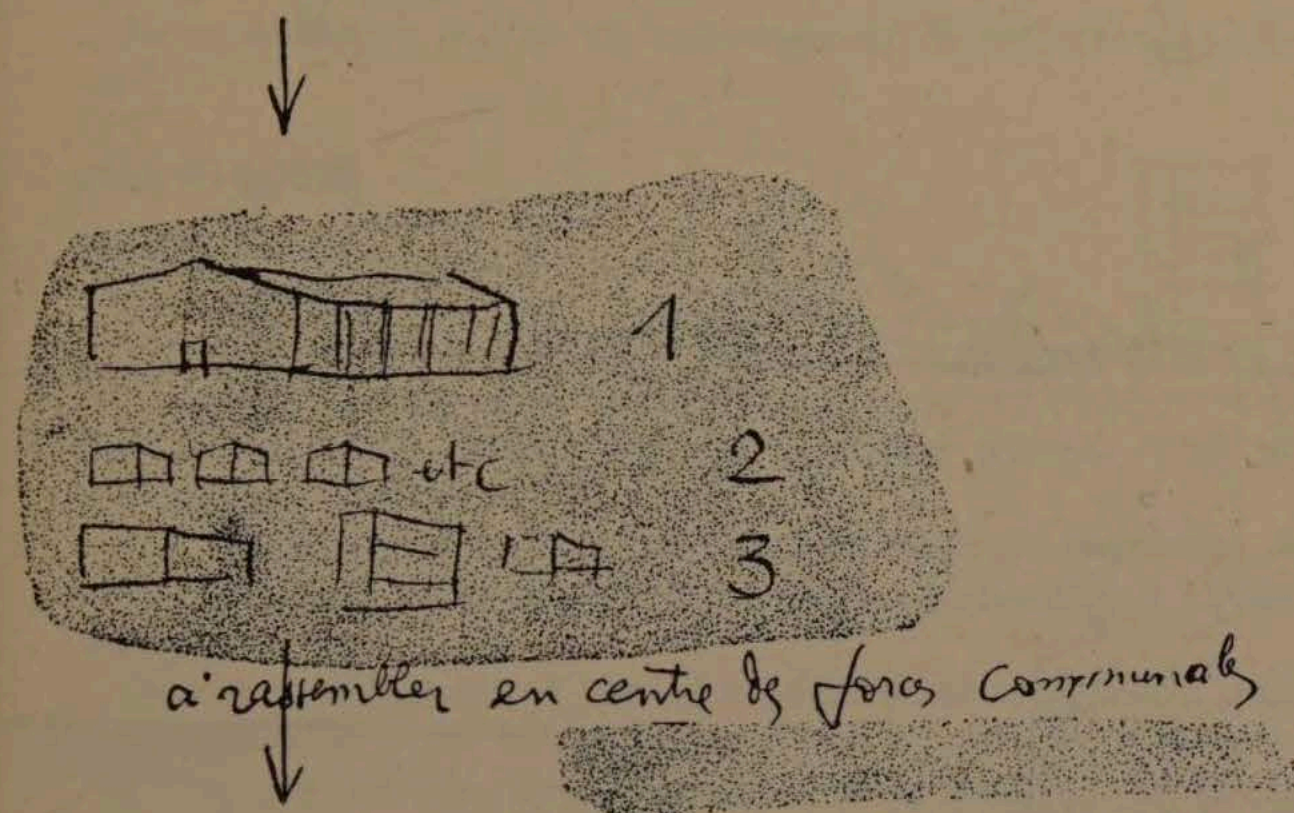 1
etc 2
3
à rassembler en centre des forces communales